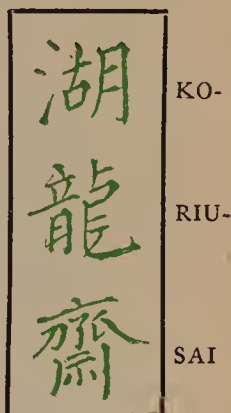 湖 KO-
龍 RIU-
齋 SAI